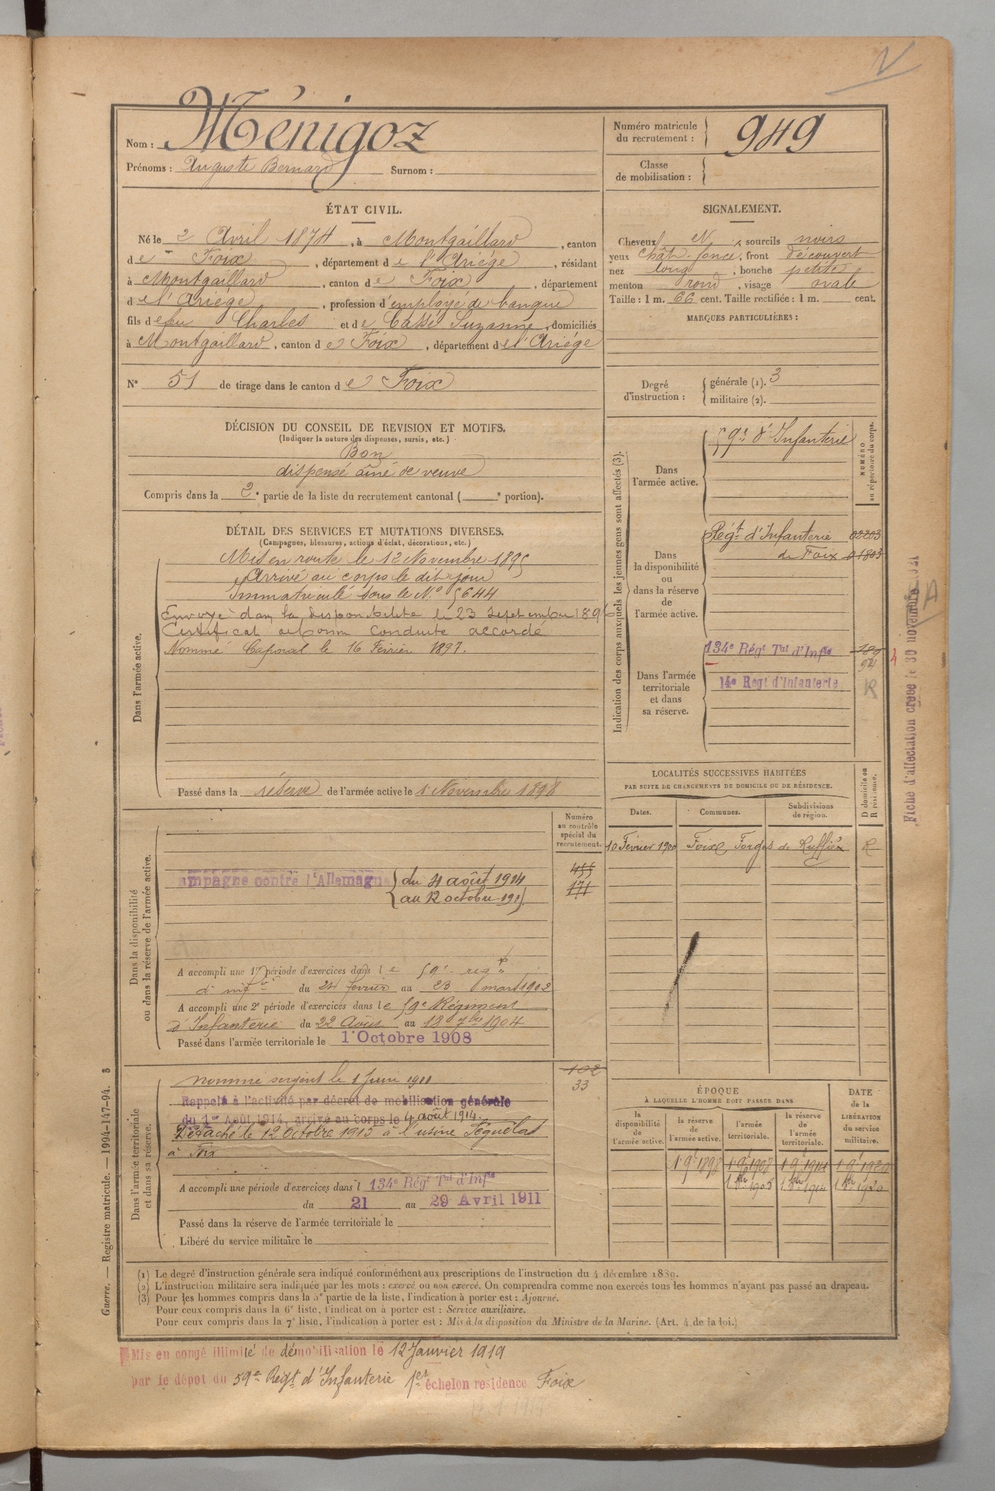 Nom : Ménigoz
Prénoms : Auguste Bernard Surnom :
Numéro matricule du recrutement : 949
Classe de mobilisation :
ÉTAT CIVIL.
Né le 2 Avril 1874, à Montgaillard, canton
de Foix, département de l'Ariège, résidant
à Montgaillard, canton de Foix, département
de l'Ariège, profession d'employé de banque
fils de feu Charles et de Cassé Suzanne, domiciliés
à Montgaillard, canton de Foix, département de l'Ariège
N° 51 de tirage dans le canton de Foix
SIGNALEMENT.
Cheveux N, sourcils noirs
yeux chât. foncé, front découvert
nez long, bouche petite
menton rond, visage ovale
Taille : 1 m. 66 cent. Taille rectifiée : 1 m. cent.
MARQUES PARTICULIÈRES :
Degré d'instruction : générale (1). 3
militaire (2).
DÉCISION DU CONSEIL DE REVISION ET MOTIFS.
(Indiquer la nature des dispenses, sursis, etc.)
Bon
dispensé aîné de veuve
Compris dans la 2e partie de la liste du recrutement cantonal ( e portion).
DÉTAIL DES SERVICES ET MUTATIONS DIVERSES.
(Campagnes, blessures, actions d'éclat, décorations, etc.)
Dans l'armée active.
Mis en route le 12 Novembre 1895
Arrivé au corps le dit jour
Immatriculé sous le N° 5644
Envoyé dans la disponibilité le 23 septembre 1896
Certificat de bonne conduite accordé
Nommé Caporal le 16 Février 1897.
Passé dans la réserve de l'armée active le 1 Novembre 1898
Indication des corps auxquels les jeunes gens sont affectés (3).
NUMÉRO au répertoire du corps.
Dans l'armée active.
59e d'Infanterie
Dans la disponibilité ou dans la réserve de l'armée active.
Régt d'Infanterie
de Foix
Dans l'armée territoriale et dans sa réserve.
134e Régt Tal d'Infie
14e Regt d'Infanterie
R
Fiche d'affectation créée le 30 novembre
LOCALITÉS SUCCESSIVES HABITÉES
PAR SUITE DE CHANGEMENTS DE DOMICILE OU DE RÉSIDENCE.
Dates. Communes. Subdivisions de région. D domicile ou R résidence.
10 Février 1900 Foix Forges de Ruffié R
Dans la disponibilité ou dans la réserve de l'armée active.
Numéro au contrôle spécial du recrutement.
455
171
ampagne contre l'Allemagne du 4 août 1914
au 12 octobre 1915
A accompli une 1re période d'exercices dans le 59e régt
d'infie du 24 février au 23 mars 1902
A accompli une 2e période d'exercices dans le 59e Régiment
d'Infanterie du 22 Août au 18 7bre 1904
Passé dans l'armée territoriale le 1 Octobre 1908
Dans l'armée territoriale et dans sa réserve.
102
33
nommé sergent le 1 Juin 1911
Rappelé à l'activité par décret de mobilisation générale
du 1er Août 1914, arrivé au corps le 4 août 1914.
Détaché le 12 Octobre 1915 à l'usine
à Foix
A accompli une période d'exercices dans l 134e Régt Tal d'Infie
du 21 au 29 Avril 1911
Passé dans la réserve de l'armée territoriale le
Libéré du service militaire le
ÉPOQUE
À LAQUELLE L'HOMME DOIT PASSER DANS
la disponibilité de l'armée active. la réserve de l'armée active. l'armée territoriale. la réserve de l'armée territoriale.
DATE de la LIBÉRATION du service militaire.
Guerre. — Registre matricule. — 1994-147-94. 3
(1) Le degré d'instruction générale sera indiqué conformément aux prescriptions de l'instruction du 4 décembre 1889.
(2) L'instruction militaire sera indiquée par les mots : exercé ou non exercé. On comprendra comme non exercés tous les hommes n'ayant pas passé au drapeau.
(3) Pour les hommes compris dans la 5e partie de la liste, l'indication à porter est : Ajourné.
Pour ceux compris dans la 6e liste, l'indication à porter est : Service auxiliaire.
Pour ceux compris dans la 7e liste, l'indication à porter est : Mis à la disposition du Ministre de la Marine. (Art. 4 de la loi.)
Mis en congé illimité de démobilisation le 12 Janvier 1919
par le dépot du 59e Régt d'Infanterie 1er échelon résidence Foix